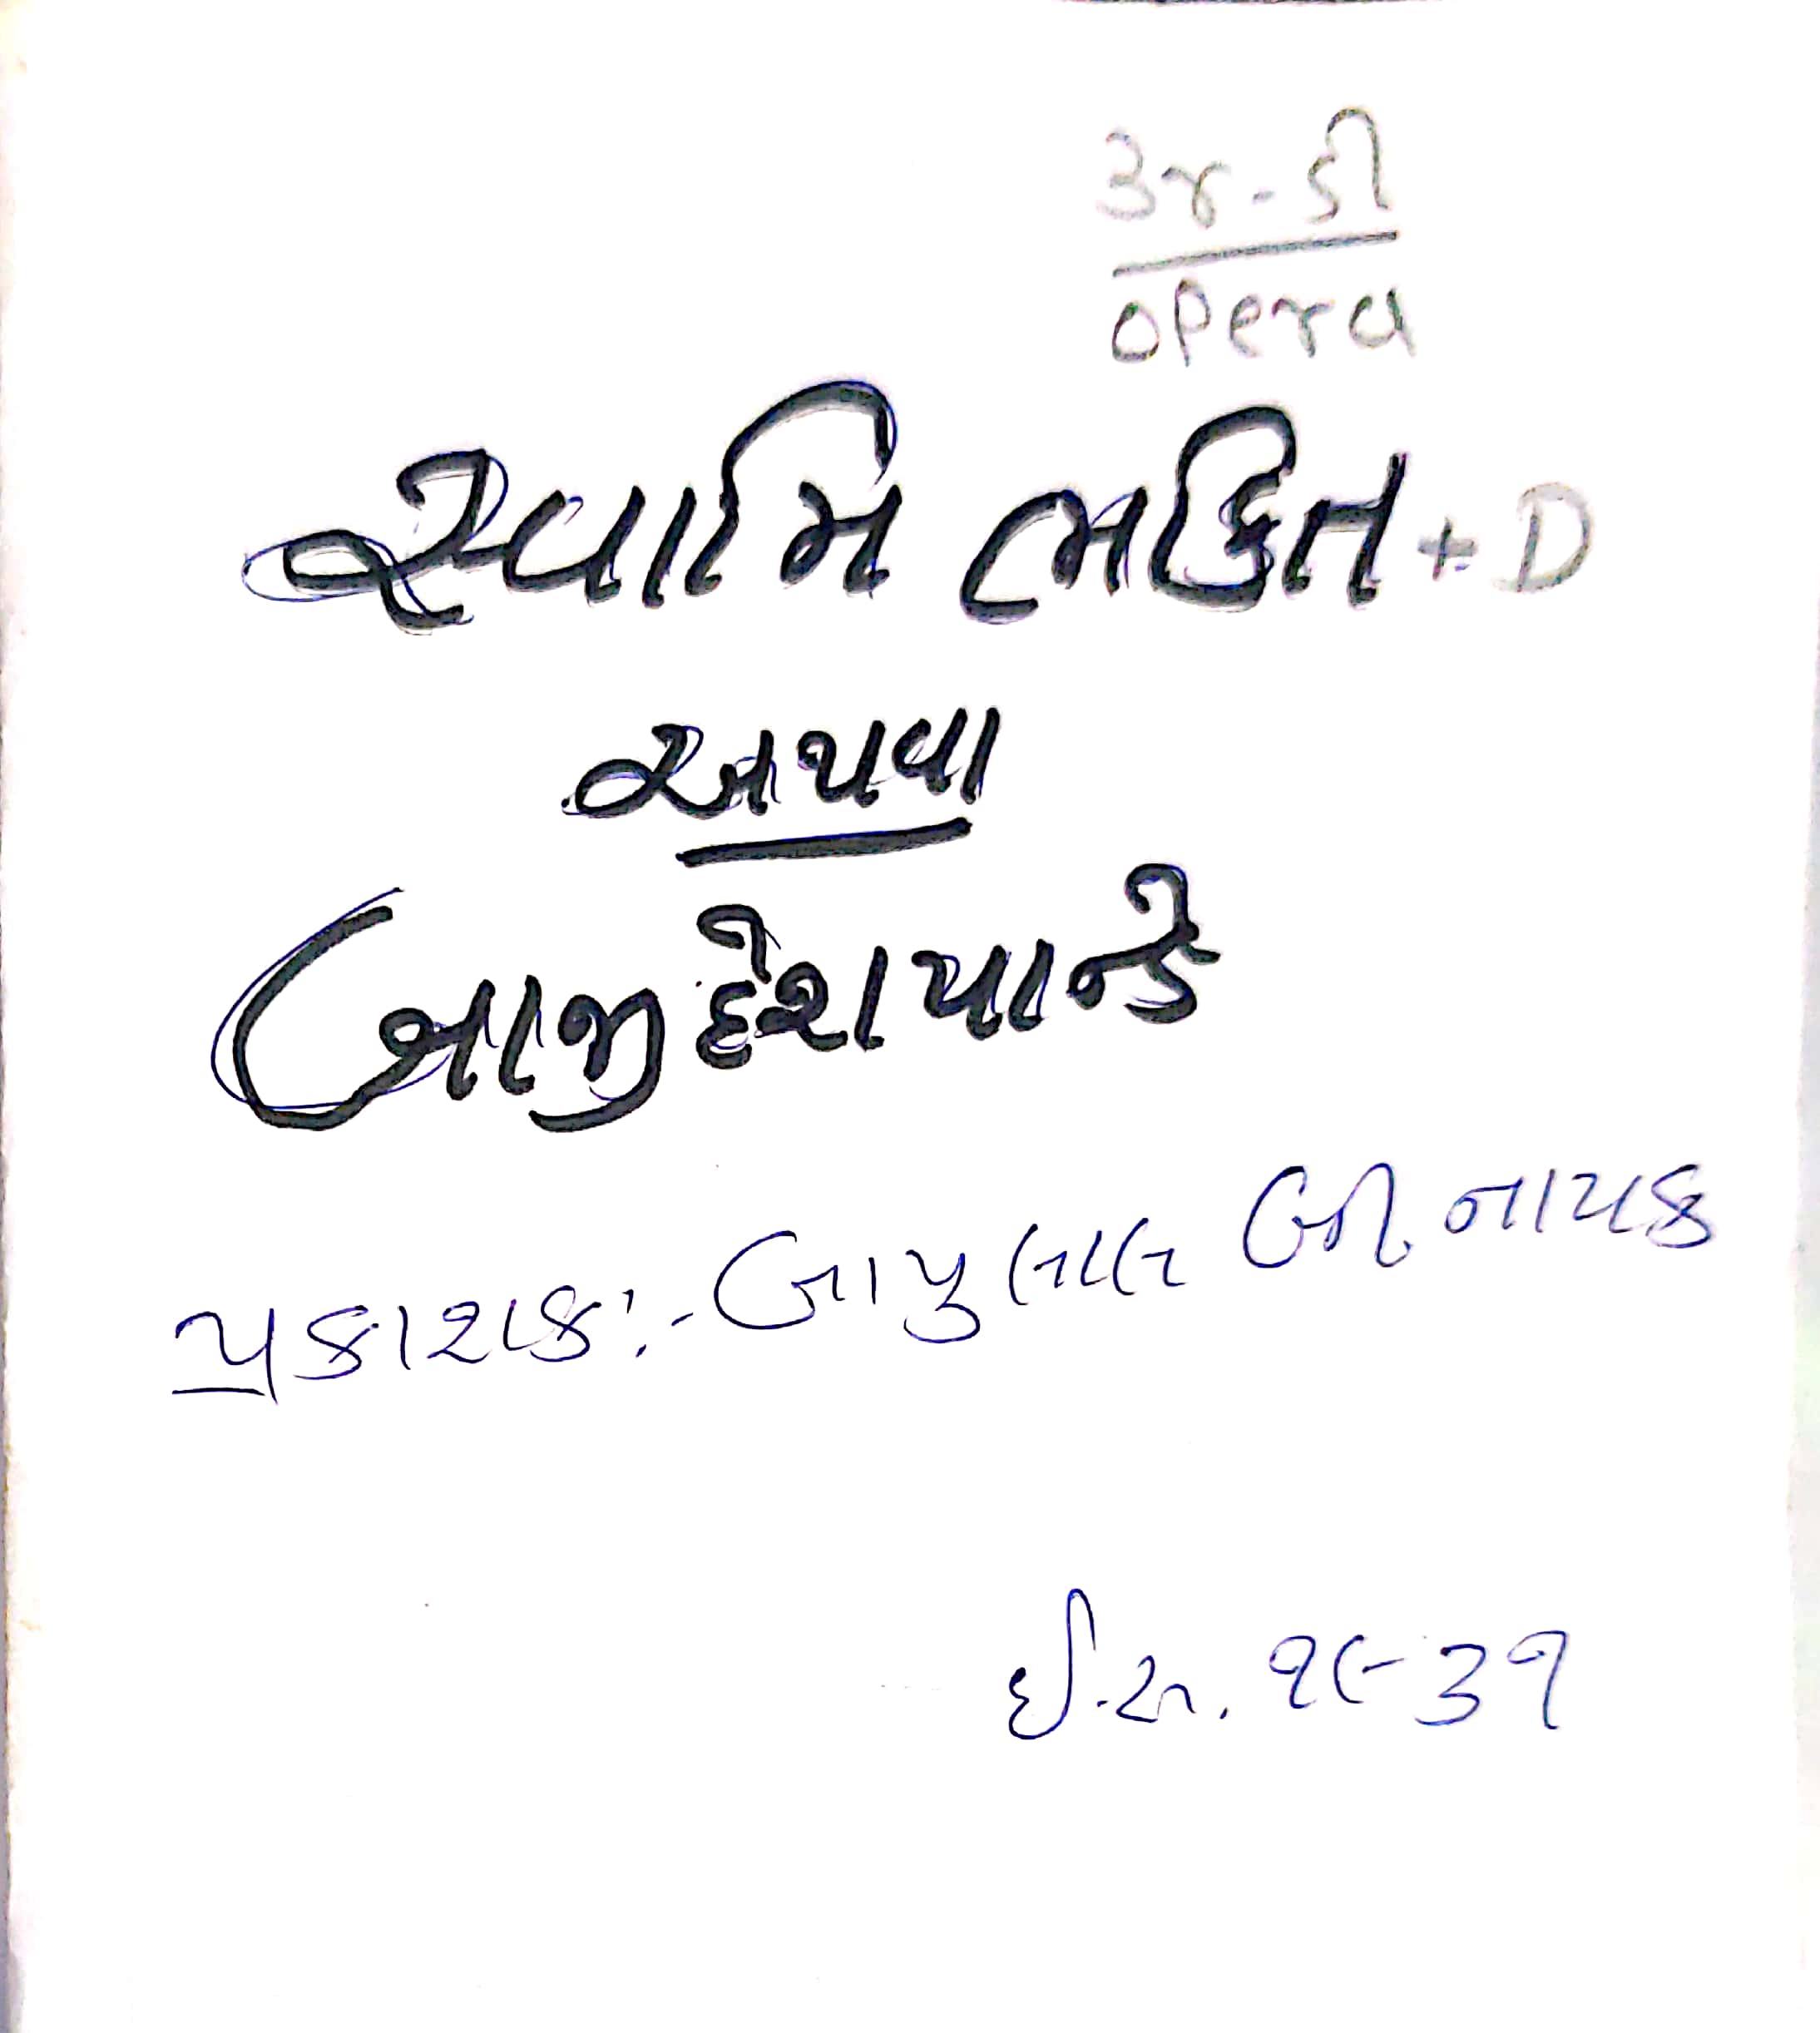 ૩૪-ડી
opera
સ્વામિ ભકિત + D
અથવા
બાજી દેશપાન્ડે
પ્રકાશક:- બાપુલાલ બી. નાયક
ઈ.સ. ૧૯૩૧